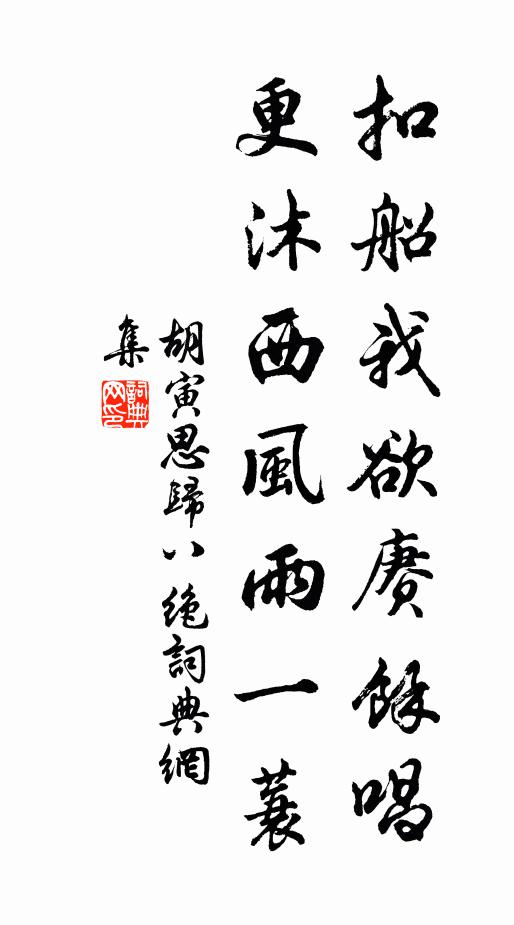 扣船我欲賡餘唱
更沐西風雨一蓑
胡寅思歸八絶詞典網
集
詞典網印